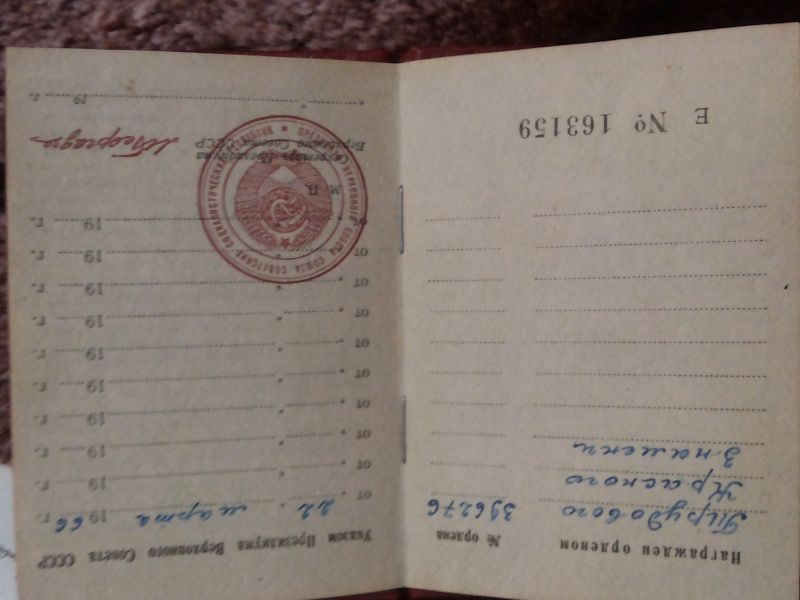 Награжден орденом № ордена
Трудового 396276
Красного
Знамени
Е № 163159
Указом Президиума Верховного Совета СССР
от "22" марта 1966 г.
от " " 19 г.
от " " 19 г.
от " " 19 г.
от " " 19 г.
от " " 19 г.
от " " 19 г.
от " " 19 г.
от " " 19 г.
от " " 19 г.
М. П.
Секретарь Президиума
Верховного Совета СССР
М Георгадзе
" " 19 г.
ПРЕЗИДИУМ ВЕРХОВНОГО СОВЕТА СОЮЗА СОВЕТСКИХ СОЦИАЛИСТИЧЕСКИХ РЕСПУБЛИК